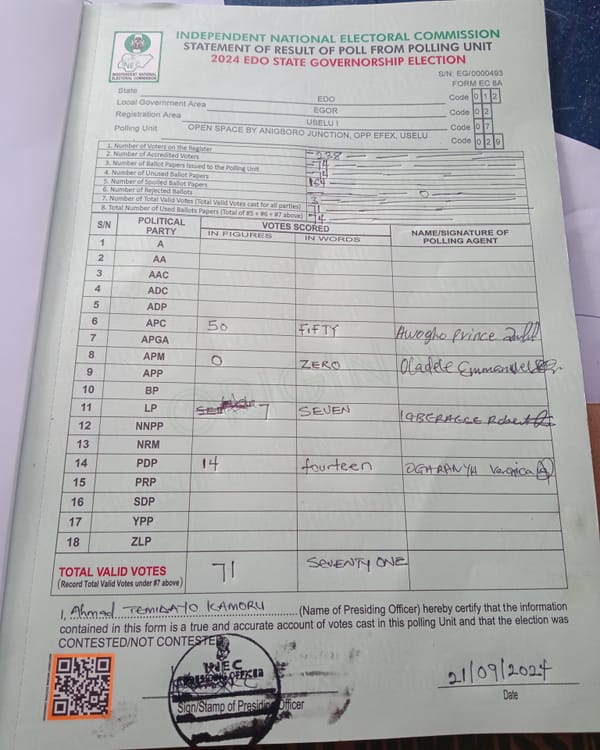 INDEPENDENT NATIONAL ELECTORAL COMMISSION
STATEMENT OF RESULT OF POLL FROM POLLING UNIT
2024 EDO STATE GOVERNORSHIP ELECTION
INDEPENDENT NATIONAL ELECTORAL COMMISSION
S/N: EG/0000493
FORM EC 8A
State EDO Code 0 1 2
Local Government Area EGOR Code 0 2
Registration Area USELU I Code 0 7
Polling Unit OPEN SPACE BY ANIGBORO JUNCTION, OPP EFEX, USELU Code 0 2 9
1. Number of Voters on the Register 238
2. Number of Accredited Voters 74
3. Number of Ballot Papers Issued to the Polling Unit
4. Number of Unused Ballot Papers 164
5. Number of Spoiled Ballot Papers 0
6. Number of Rejected Ballots 3
7. Number of Total Valid Votes (Total Valid Votes cast for all parties) 71
8. Total Number of Used Ballots Papers (Total of #5 + #6 + #7 above) 74
S/N POLITICAL PARTY VOTES SCORED NAME/SIGNATURE OF POLLING AGENT
IN FIGURES IN WORDS
1 A
2 AA
3 AAC
4 ADC
5 ADP
6 APC 50 FIFTY Awogho Prince
7 APGA
8 APM 0 ZERO Oladele Emmanuel
9 APP
10 BP
11 LP 7 SEVEN Robert
12 NNPP
13 NRM
14 PDP 14 fourteen
15 PRP
16 SDP
17 YPP
18 ZLP
TOTAL VALID VOTES 71 SEVENTY ONE
(Record Total Valid Votes under #7 above)
I, Ahmad TEMIDAYO KAMORU (Name of Presiding Officer) hereby certify that the information
contained in this form is a true and accurate account of votes cast in this polling Unit and that the election was
CONTESTED/NOT CONTESTED
INEC
PRESIDING OFFICER
Sign/Stamp of Presiding Officer
21/09/2024
Date